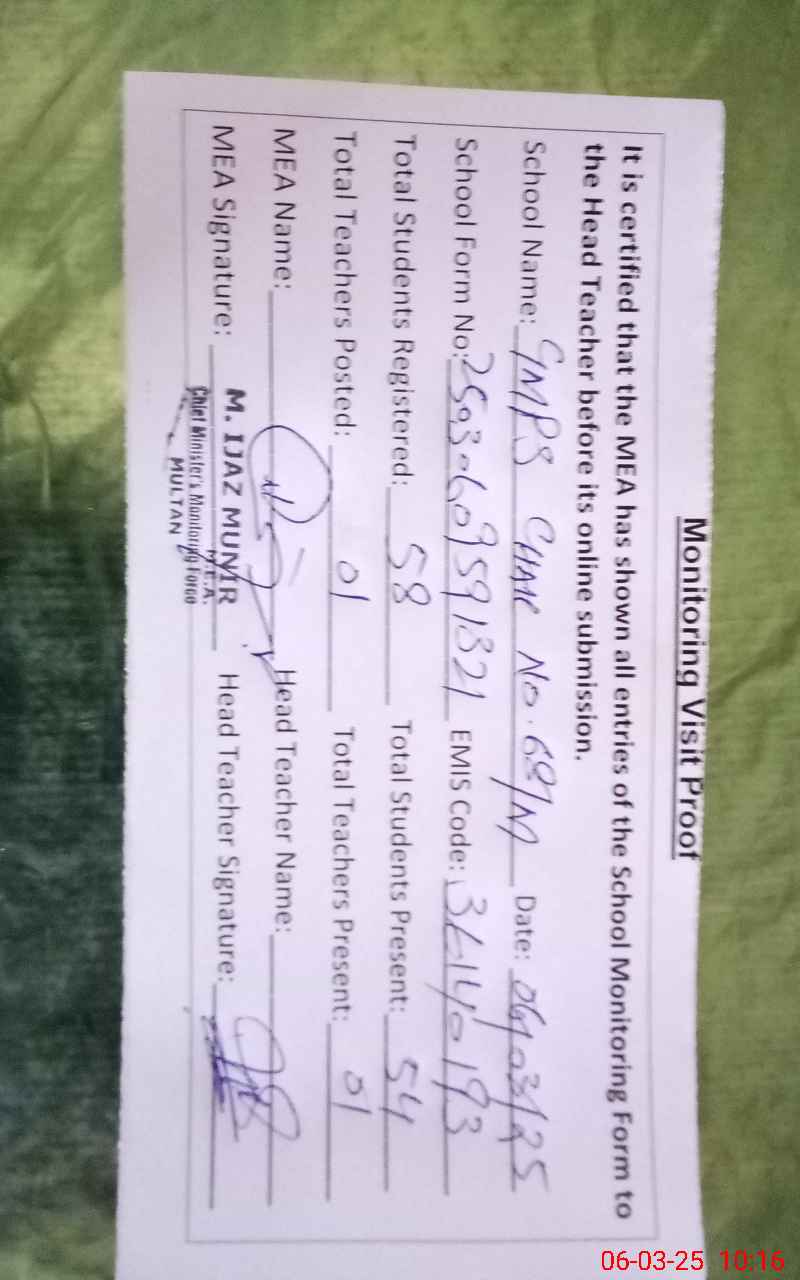 Monitoring Visit Proof
It is certified that the MEA has shown all entries of the School Monitoring Form to
the Head Teacher before its online submission.
School Name: GMPS CHAK NO. 68/M Date: 06/03/25
School Form No: 2503060959 1321 EMIS Code: 36140193
Total Students Registered: 58 Total Students Present: 54
Total Teachers Posted: 01 Total Teachers Present: 01
MEA Name: Head Teacher Name:
MEA Signature: Head Teacher Signature:
M. IJAZ MUNIR
M.E.A.
Chief Minister's Monitoring Force
MULTAN
06-03-25 10:16